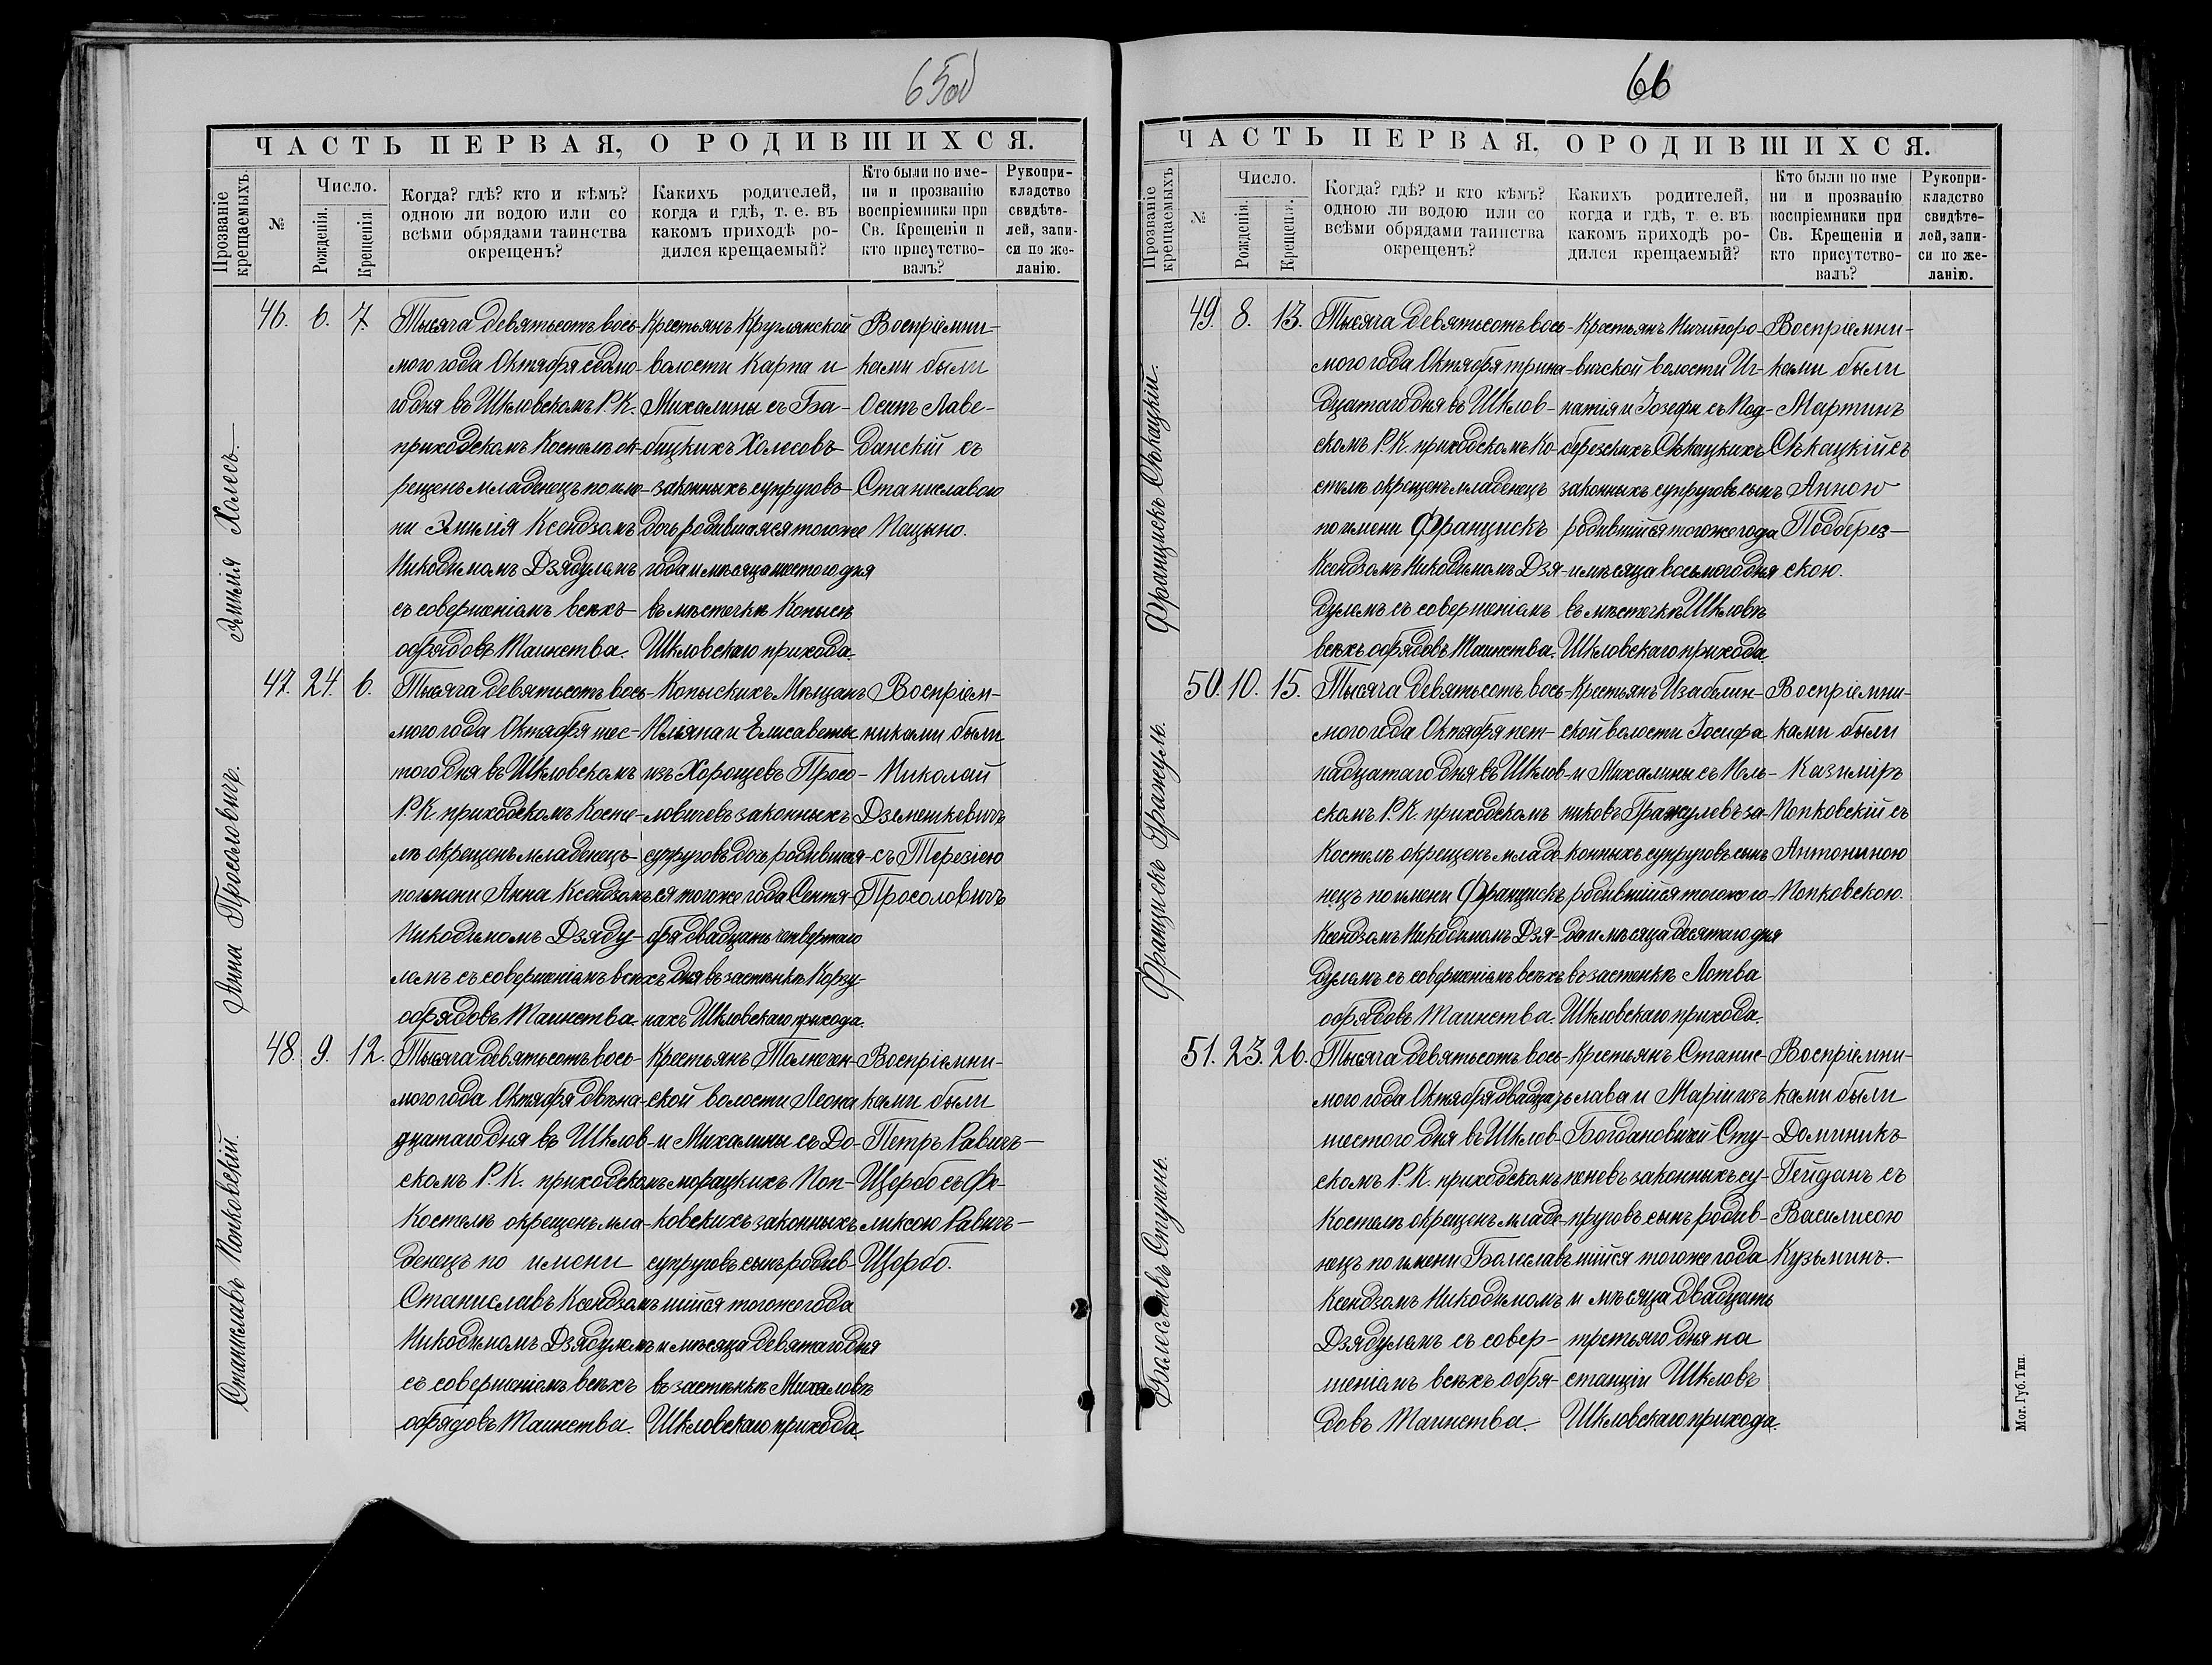 65об
ЧАСТЬ ПЕРВАЯ, О РОДИВШИХСЯ.
Прозваніе крещаемыхъ.
№
Число.
Рожденія.
Крещенія.
Когда? гдѣ? кто и кѣмъ?
одною ли водою или со
всѣми обрядами таинства
окрещенъ?
Какихъ родителей,
когда и гдѣ, т. е. въ
какомъ приходѣ ро-
дился крещаемый?
Кто были по име-
ни и прозванію
воспріемники при
Св. Крещеніи и
кто присутство-
валъ?
Рукопри-
кладство
свидѣте-
лей, запи-
си по же-
ланію.
Эмилія Холесъ.
46. 6. 7.
Тысяча девятьсотъ вось-
мого года Октября седмо-
го дня въ Шкловскомъ Р. К.
приходскомъ Костелѣ ок-
рещенъ младенецъ по име-
ни Эмилія Ксендзомъ
Никодимомъ Дзядулемъ
съ совершеніемъ всѣхъ
обрядовъ Таинства.
Крестьянъ Круглянской
волости Карпа и
Михалины съ Ба-
бицкихъ Холесовъ
законныхъ супруговъ
дочь родившаяся тогоже
года и мѣсяца шестого дня
въ мѣстечкѣ Копысѣ
Шкловскаго прихода.
Воспріемни-
ками были
Осипъ Лаве-
данскій съ
Станиславою
Пацыно.
Анна Просоловичъ.
47. 24. 6.
Тысяча девятьсотъ вось-
мого года Октября шес-
того дня въ Шкловскомъ
Р. К. приходскомъ Косте-
лѣ окрещенъ младенецъ
по имени Анна Ксендзомъ
Никодимомъ Дзяду-
лемъ съ совершеніемъ всѣхъ
обрядовъ Таинства.
Копыскихъ Мѣщанъ
Юліяна и Елисаветы
изъ Хорощевъ Просо-
ловичевъ законныхъ
супруговъ дочь родившая-
ся тогоже года Сентя-
бря двадцать четвертаго
дня въ застѣнкѣ Корзу-
нахъ Шкловскаго прихода.
Воспріем-
никами были
Николай
Дземешкевичъ
съ Терезіею
Просоловичъ
Станиславъ Попковскій.
48. 9. 12.
Тысяча девятьсотъ вось-
мого года Октября двѣна-
дцатаго дня въ Шклов-
скомъ Р. К. приходскомъ
Костелѣ окрещенъ мла-
денецъ по имени
Станиславъ Ксендзомъ
Никодимомъ Дзядулемъ
съ совершеніемъ всѣхъ
обрядовъ Таинства.
Крестьянъ Толкочен-
ской волости Леона
и Михалины съ До-
морацкихъ Поп-
ковскихъ законныхъ
супруговъ сынъ родив-
шійся тогоже года
и мѣсяца девятаго дня
въ застѣнкѣ Михаловѣ
Шкловскаго прихода.
Воспріемни-
ками были
Петръ Равичъ-
Щербо съ Фе-
ликсою Равичъ-
Щербо.
66
ЧАСТЬ ПЕРВАЯ, О РОДИВШИХСЯ.
Прозваніе крещаемыхъ
№
Число.
Рожденія.
Крещенія.
Когда? гдѣ? и кто кѣмъ?
одною ли водою или со
всѣми обрядами таинства
окрещенъ?
Какихъ родителей,
когда и гдѣ, т. е. въ
какомъ приходѣ ро-
дился крещаемый?
Кто были по име
ни и прозванію
воспріемники при
Св. Крещеніи и
кто присутство-
валъ?
Рукопри-
кладство
свидѣте-
лей, запи-
си по же-
ланію.
Францискъ Сѣкацкій.
49. 8. 13.
Тысяча девятьсотъ вось-
мого года Октября трина-
дцатаго дня въ Шклов-
скомъ Р. К. приходскомъ Ко-
стелѣ окрещенъ младенецъ
по имени Францискъ
Ксендзомъ Никодимомъ Дзя-
дулемъ съ совершеніемъ
всѣхъ обрядовъ Таинства.
Крестьянъ Ничипоро-
вичской волости Иг-
натія и Іозефы съ Под-
березскихъ Сѣкацкихъ
законныхъ супруговъ сынъ
родившійся тогоже года
и мѣсяца восьмого дня
въ мѣстечкѣ Шкловѣ
Шкловскаго прихода.
Воспріемни-
ками были
Мартинъ
Сѣкацкій съ
Анною
Подберез-
скою.
Францискъ Гражуль.
50. 10. 15.
Тысяча девятьсотъ вось-
мого года Октября пят-
надцатаго дня въ Шклов-
скомъ Р. К. приходскомъ
Костелѣ окрещенъ младе-
нецъ по имени Францискъ
Ксендзомъ Никодимомъ Дзя-
дулемъ съ совершеніемъ всѣхъ
обрядовъ Таинства.
Крестьянъ Изаблин-
ской волости Іосифа
и Михалины съ Мель-
никовъ Гражулевъ за-
конныхъ супруговъ сынъ
родившійся тогоже го-
да и мѣсяца десятаго дня
въ застенкѣ Лотва
Шкловскаго прихода.
Воспріемни-
ками были
Казиміръ
Попковскій съ
Антониною
Попковскою.
Болеславъ Ступень.
51. 23. 26.
Тысяча девятьсотъ вось-
мого года Октября двадцать
шестого дня въ Шклов-
скомъ Р. К. приходскомъ
Костелѣ окрещенъ младе-
нецъ по имени Болеславъ
Ксендзомъ Никодимомъ
Дзядулемъ съ совер-
шеніемъ всѣхъ обря-
довъ Таинства.
Крестьянъ Станис-
лава и Маріи изъ
Богдановичей Сту-
пеновъ законныхъ су-
пруговъ сынъ родив-
шійся тогоже года
и мѣсяца двадцать
третьяго дня на
станціи Шкловъ
Шкловскаго прихода.
Воспріемни-
ками были
Доминикъ
Гейданъ съ
Василисою
Кузьминъ.
Мог. Губ. Тип.